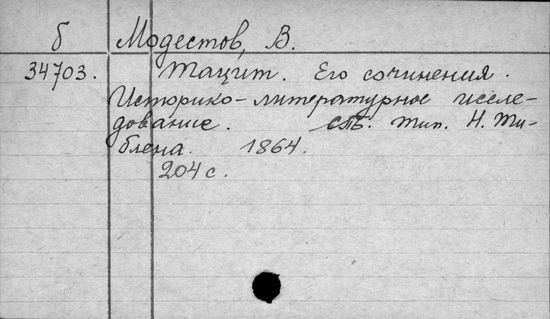 б Модестов, В.
34703. Тацит. Его сочинения.
Историко-литературное иссле-
дование. СПб. Тип. Н. Ти-
блена. 1864.
204 с.